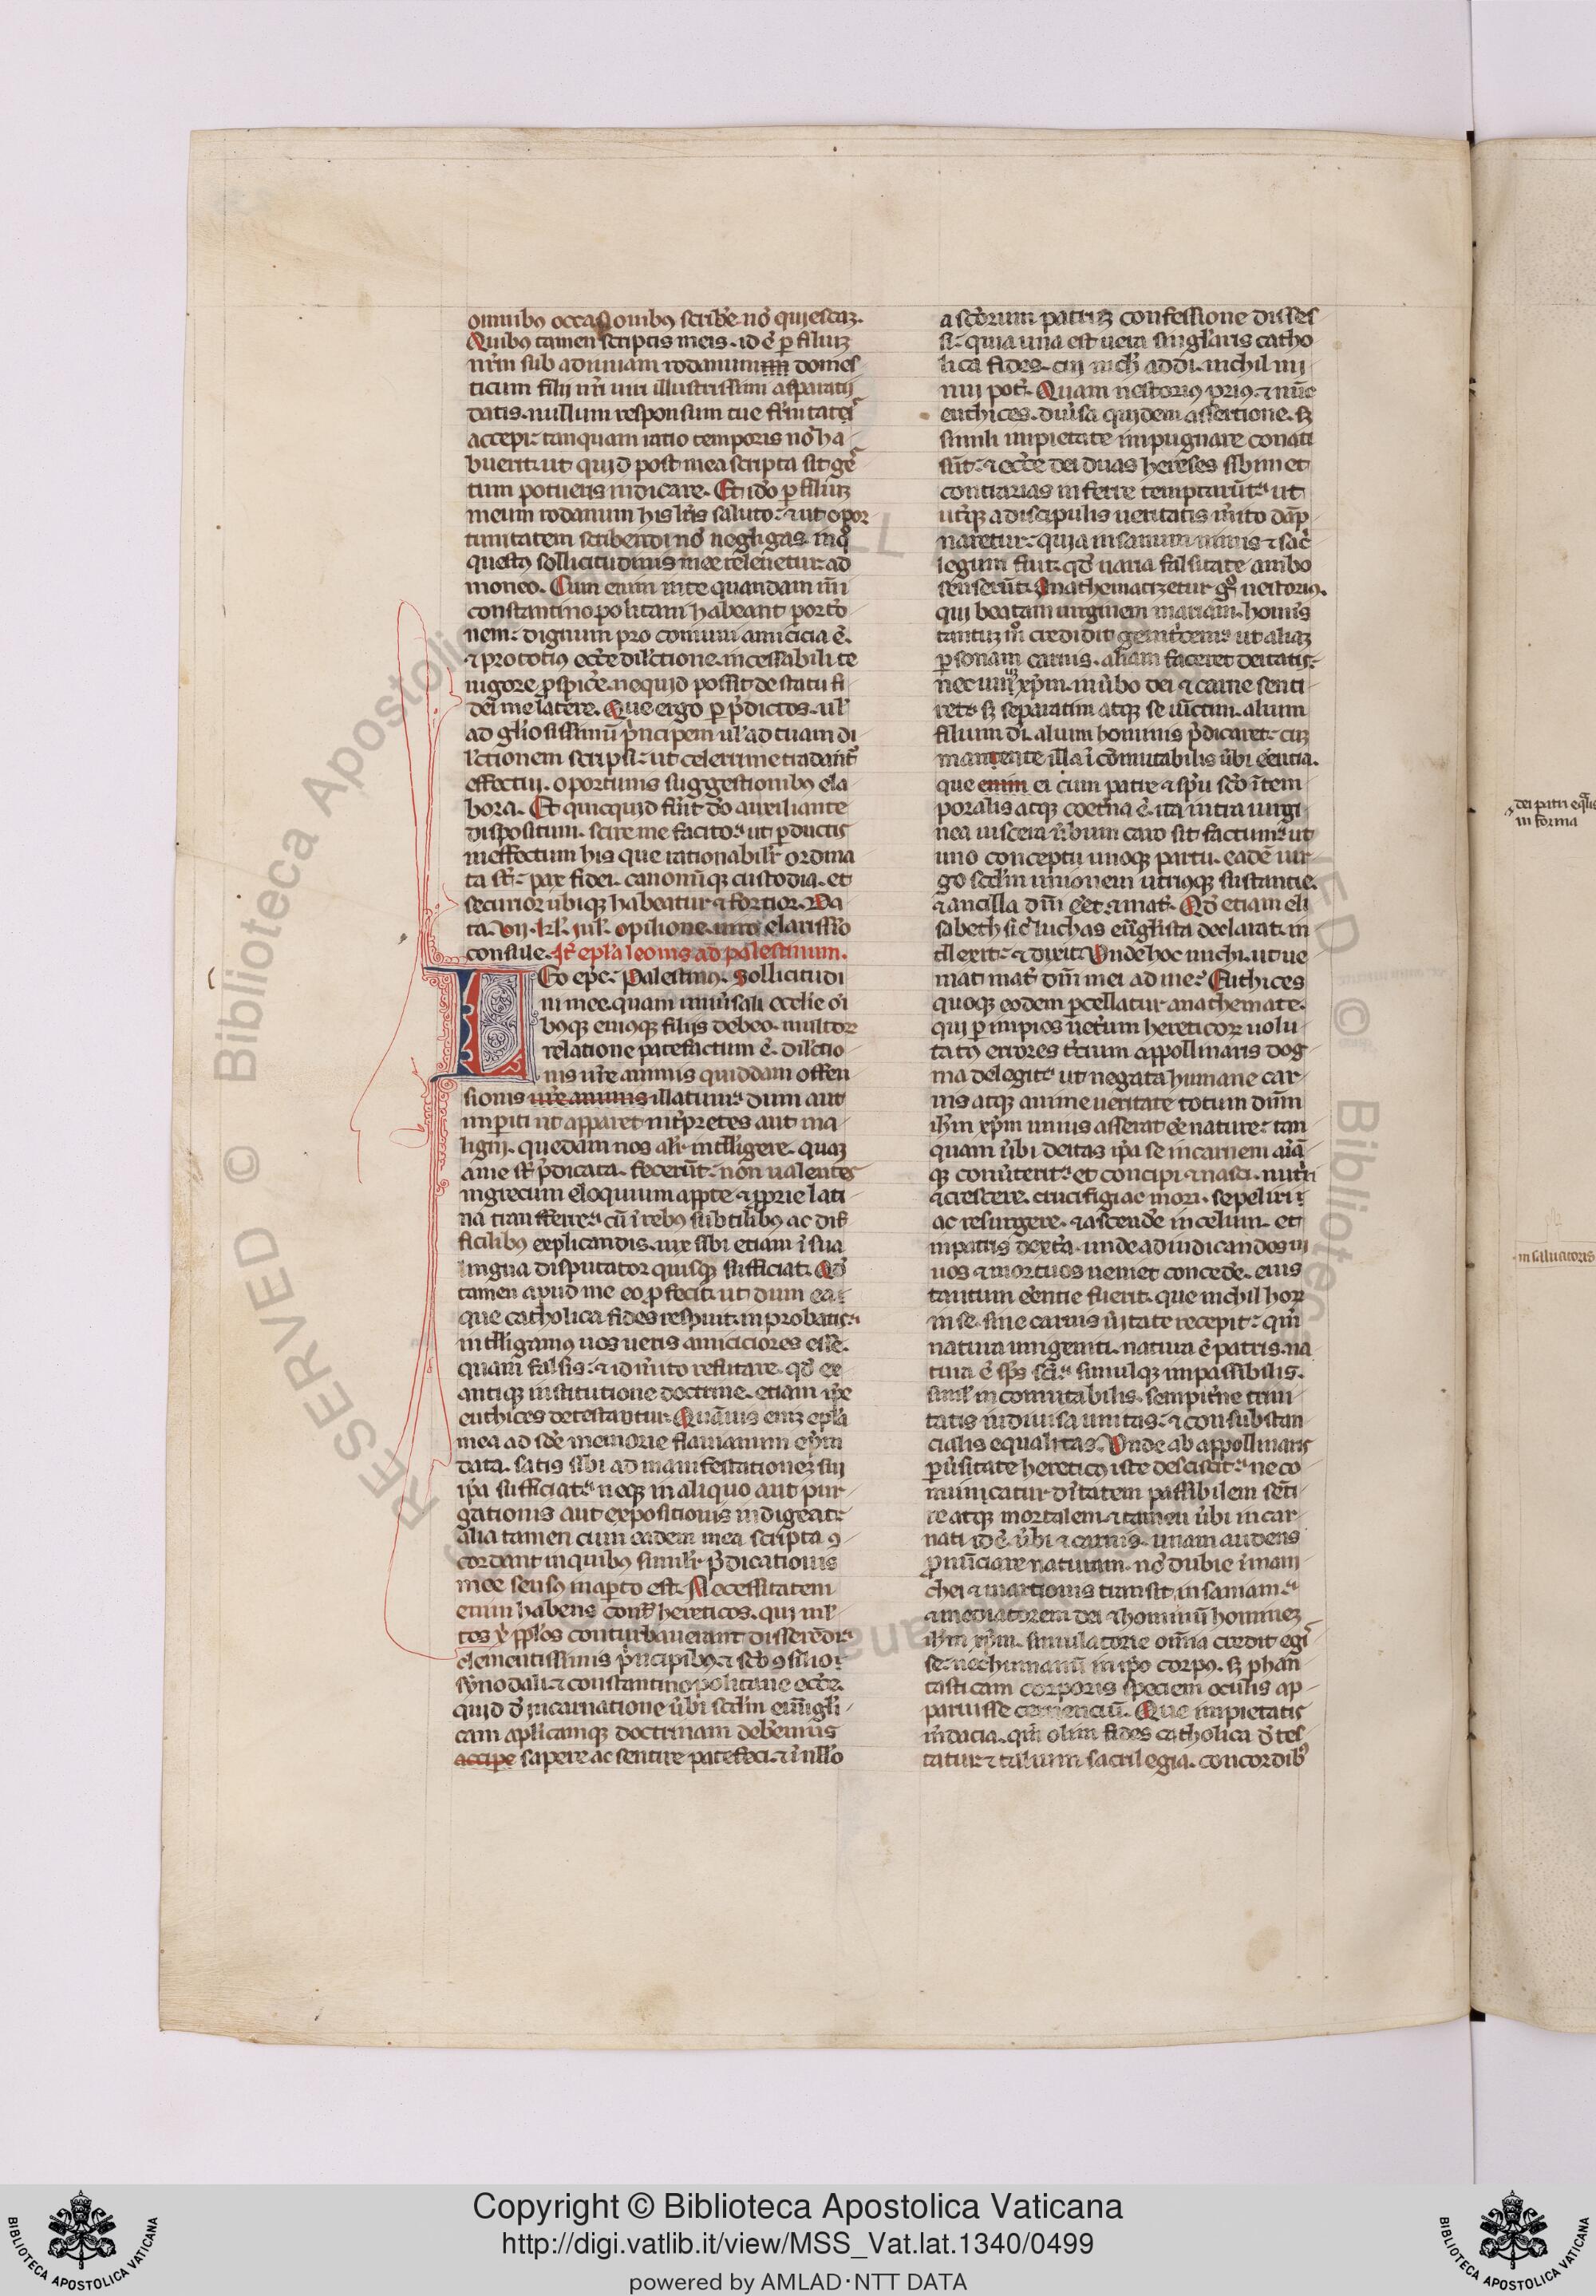 omnibꝰ occasionibꝰ scribe᷑ no᷑ quiescaꝫ.
Quibꝰ tamen scriptis meis. id ē ꝑ filiuꝫ
nr̄m sub adiuuam rodanum domes
ticum filij nr̄i uiri illustrissimi asparatij
datis. nullum responsum tue fr̄nitatis
accepi. tanquam ratio temporis nō ha
buerit. ut quid post mea scripta sit ges
tum potueris indicare. Et ido ꝑ filiuꝫ
meum rodanum his lr̄is saluto. ⁊ ut opor
tunitatem scribendi nō negligas. in qͦ
questꝰ sollicitudinis mee releuetur. ad
moneo. Cum enim in te quandam mi
constantinopolitani habeant portō
nem. dignum pro comuni amicicia ē.
⁊ pro totiꝰ ecc̄e dilc̄tione. incessabili te
uigore ꝑspicē. ne quid possit de statu fi
dei me latere. Que ergo ꝑ p̄dictos. ul̓
ad gl̓iosissimū p̓ncipem ul̓ ad tuam di
lc̄tionem scripsi. ut celerrime tradant᷑
effectui. oportunis suggestionibꝰ ela
bora. Et quicquid fuīt do auxiliante
dispositum. scire me facito. ut ꝑductis
in effectum his que rationabilīr ordina
ta st̄. pax fidei. canonūqꝫ custodia. et
securior ubiqꝫ habeatur ⁊ fortior. Da
ta. vij. kl̓. jul̓. opilione uiro clarissīo
consule. It̄ epl̓a leonis ad palestinum.
LEo epc̄. Palestinis. Sollicitudi
ni mee. quam uniūsali ecclie oī
bꝰqꝫ eiusqꝫ filijs debeo. multor
relatione patefactum ē. dilc̄tio
nis ur̄e animis quiddam offen
sionis ur̄e animis illatum. dum aut
imꝑiti ut apparet int̓pretes aut ma
ligni. quedam nos alīr intll̓igere. quaꝫ
a me st̄ p̄dicata. fecerūt. non ualentes
in grecum eloquium apte ⁊ ꝓprie lati
na transferre. cū ī rebꝰ subtilibꝰ ac dif
ficilibꝰ explicandis. uix sibi etiam ī sua
lingua disputator quisqꝫ sufficiat. Qd̄
tamen apud me eo ꝓfecit. ut dum ea
que catholica fides respuit. inprobatis.
intll̓igamꝰ uos ueris amiciciores esse.
quam falsis. ⁊ id mīto refutare. qd̄ ex
antiqꝫ institutione doctrine. etiam ip̄e
euthices detestantur. Quāuis eniꝫ epl̓a
mea ad sc̄e memorie flauianum ep̄m
data. satis sibi ad manifestationeꝫ sui
ip̄a sufficiat. neqꝫ in aliquo aut pur
gationis aut expositionis indigeat.
alia tamen cum eadem mea scripta ꝯ
cordant. in quibꝰ similīr p̄dicationis
mee sensꝰ in aꝑto est. Necessitatem
enim habens cont̄ hereticos. qui ml̓
tos x̄ ppl̓os conturbauerant disserēdi.
clementissimis p̓ncipibꝰ. ⁊ sc̄o ꝯsilio
synodali. ⁊ constantinopolitane ecc̄e.
quid d̄ incarnatione ūbi scdm̄ euūgl̓i
cam apl̓icamqꝫ doctrinam debēmus
accipe sapere ac sentire patefeci. ⁊ ī nll̓o
a sc̄orum patruꝫ confessione disces
si. quia una est uera singl̓aris catho
lica fides. cui nich̓ addi. nichil mi
nui pot̄. Quam nestoriꝰ priꝰ. ⁊ nūc
euthices. diūsa quidem assertione. sꝫ
simili impietate impugnare conati
sūt. ⁊ ecc̄e dei duas hereses sibimet
contrarias inferre temptarūt. ut
ut̄qꝫ a discipulis ueritatis mīto dāp
naretur. quia insanum nimis ⁊ sac̓
legum fuit. qd̄ uaria falsitate ambo
senserūt. Anathematizetur gͦ nestoriꝰ.
qui beatam uirginem mariam. hoīs
tantūꝫ mͦ credidit genit̓cem. ut aliaꝫ
ꝑsonam carnis. aliam faceret deitatis.
nec unū xp̄m. in ūbo dei ⁊ carne senti
ret. sꝫ separatim atqꝫ seiūctim. alium
filium di. alium hominis p̄dicaret. cuꝫ
manente illa īcōmutabilis ūbi eēntia.
que enim ei cum patre ⁊ sp̄u sc̄o ītem
poralis atqꝫ coet̓na ē. ita intra uirgi
nea uiscera ūbum caro sit factum. ut
uno conceptu unoqꝫ partu. eadē uir
go scdm̄ unionem utriusqꝫ sustantie.
⁊ ancilla dn̄i eēt ⁊ mat̄. Qd̄ etiam eli
sabeth sic̄ luchas euūglista declarat. in
tll̓exit. ⁊ dixit. Vnde hoc michi. ut ue
niat mat̄ dn̄i mei ad me. Euthices
quoqꝫ eodem ꝑcellatur anathemate.
qui ꝑ impios uet̄um hereticor uolu
tatꝰ errores t̄cium appollinaris dog
ma delegit. ut negata humane car
nis atqꝫ anime ueritate totum dn̄m
ihm̄ xp̄m unius asserat eē nature. tan
quam ūbi deitas ip̄a se in carnem aīā
qꝫ conūterit. et concipi ⁊ nasci. nutri
⁊ crescere. crucifigi ac mori. sepeliri
ac resurgere. ⁊ ascendē in celum. et
in patris dext̄a. unde ad iudicandos ui
uos ⁊ mortuos ueniet concedē. eius
tantum eēntie fuerit. que nichil hor
in se. sine carnis ūitate recepit. qm̄
natura unigeniti. natura ē patris. na
tura ē sp̄s sc̄i. simulqꝫ inpassibilis.
simul̓ incomutabilis. sempīne trini
tatis indiuisa unitas. ⁊ consubstan
cialis equalitas. Vnde ab appollinaris
ꝑūsitate hereticꝰ iste desciscit. ne co
muincatur dītatem passibilem sēti
re atqꝫ mortalem. ⁊ tamen ūbi incar
nati id ē ūbi ⁊ carnis. unam audens
ꝓnūciare naturam. nō dubie ī mani
chei ⁊ martionis transit insaniam.
⁊ mediatorem dei ⁊ hominū hominez
ihm̄ xp̄m. simulatorie om̄a credit egis
se. nec humanū in ip̄o corpꝰ. sꝫ phan
tasticam corporis speciem oculis ap
paruisse cernenciū. Que impietatis
m̄dacia. qm̄ olim fides catholica d̄tes
tatur. ⁊ talium sacrilegia. concordibꝰ
dei patri eqͣlis
in forma
in saluatoris
Copyright © Biblioteca Apostolica Vaticana
http://digi.vatlib.it/view/MSS_Vat.lat.1340/0499
powered by AMLAD·NTT DATA
BIBLIOTECA APOSTOLICA VATICANA
BIBLIOTECA APOSTOLICA VATICANA